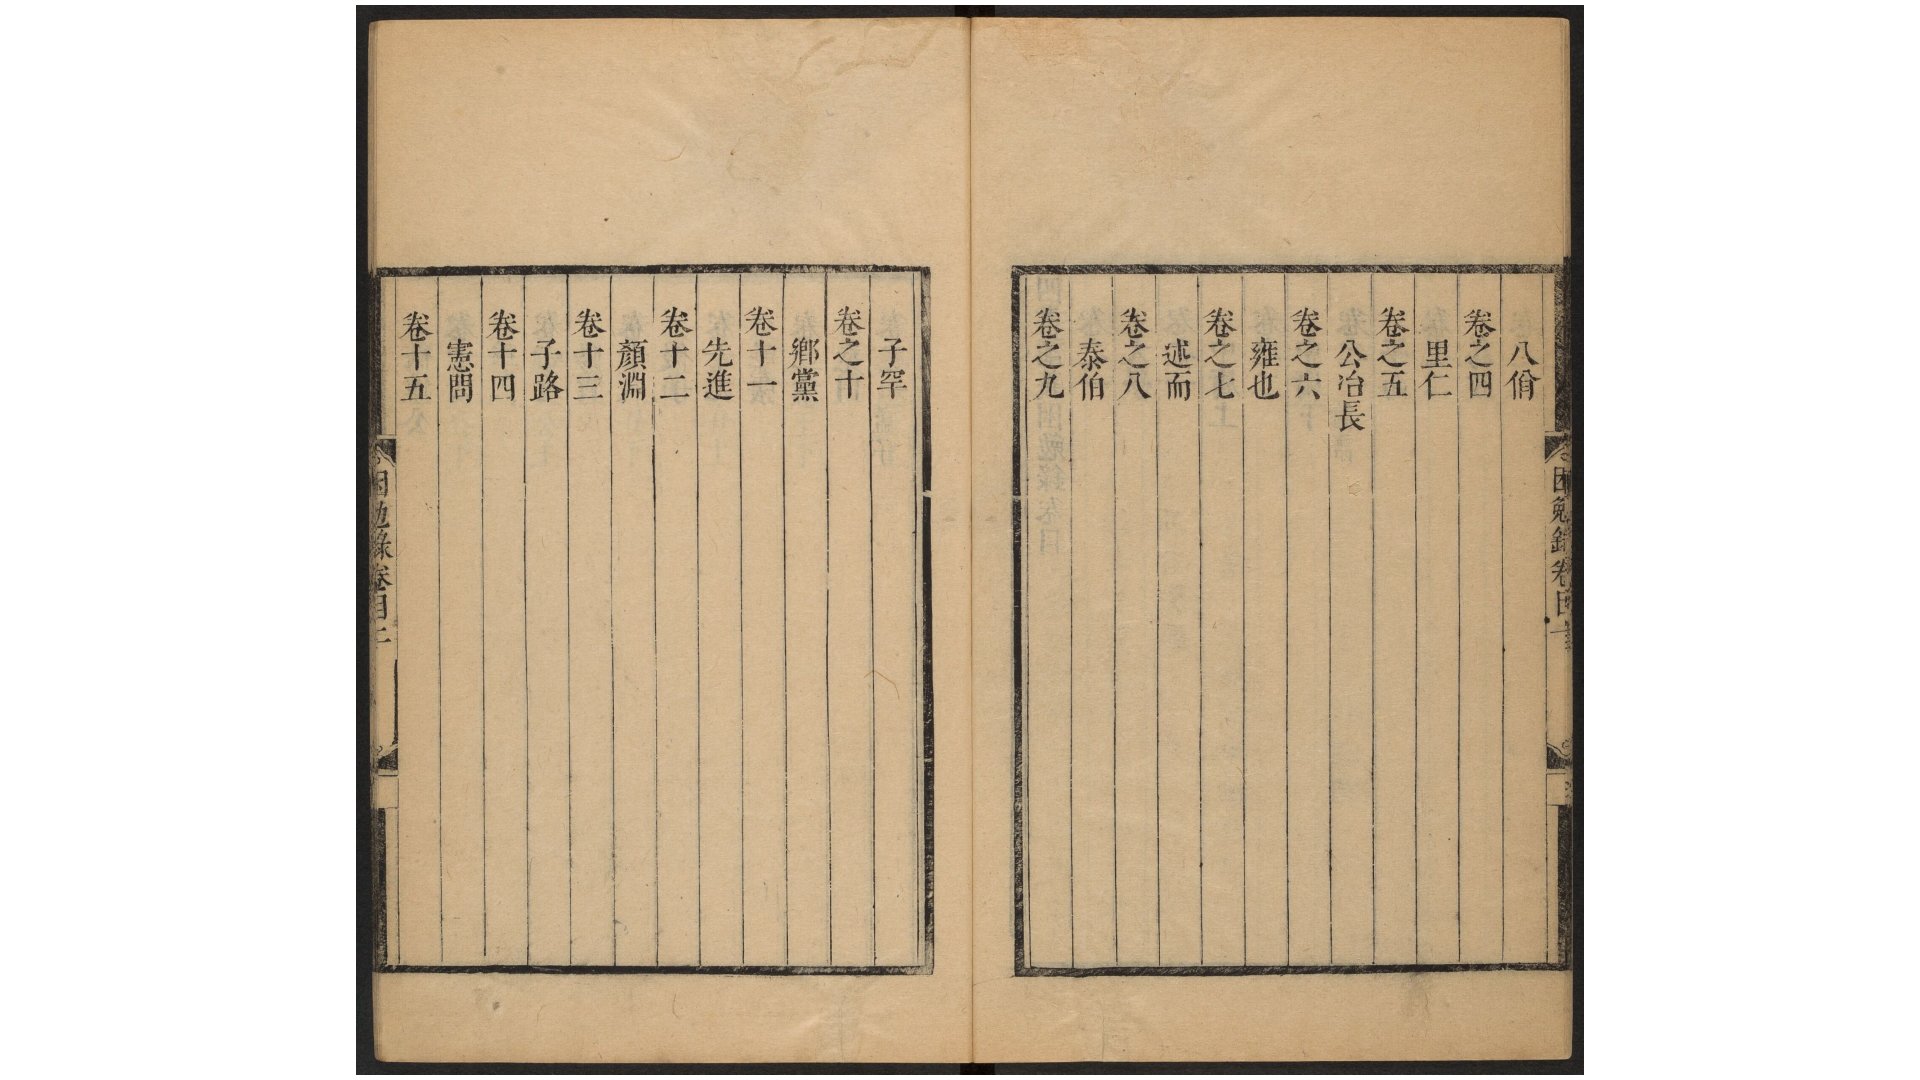 八佾
卷之四
里仁
卷之五
公冶長
卷之六
雍也
卷之七
述而
卷之八
泰伯
卷之九
子罕
卷之十
鄉黨
卷十一
先進
卷十二
顏淵
卷十三
子路
卷十四
憲問
卷十五
困勉錄卷目